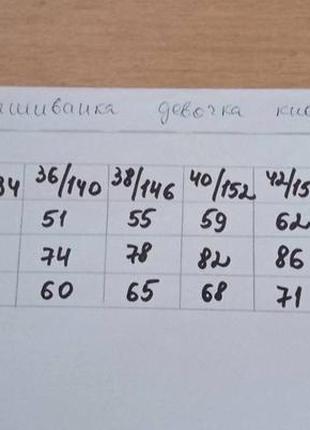 девочка
34 36/140 38/146 40/152 42/15
51 55 59 62
74 78 82 86
60 65 68 71